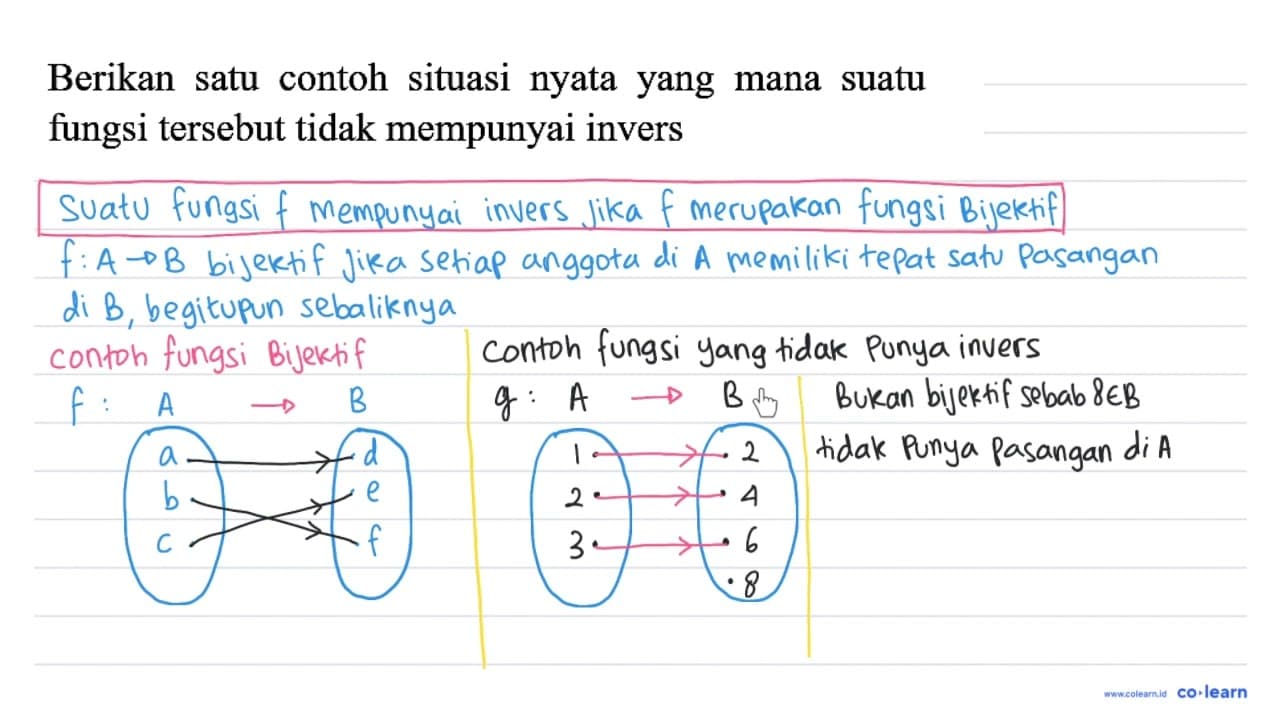 Berikan satu contoh situasi nyata yang mana suatu
fungsi tersebut tidak mempunyai invers
Suatu fungsi f mempunyai invers jika f merupakan fungsi Bijektif
f : A → B bijektif jika setiap anggota di A memiliki tepat satu Pasangan
di B, begitupun sebaliknya
contoh fungsi Bijektif
f : A → B
a d
b e
c f
Contoh fungsi yang tidak Punya invers
g : A → B
1 2
2 4
3 6
8
Bukan bijektif sebab 8∈B
tidak Punya Pasangan di A
www.colearn.id co·learn